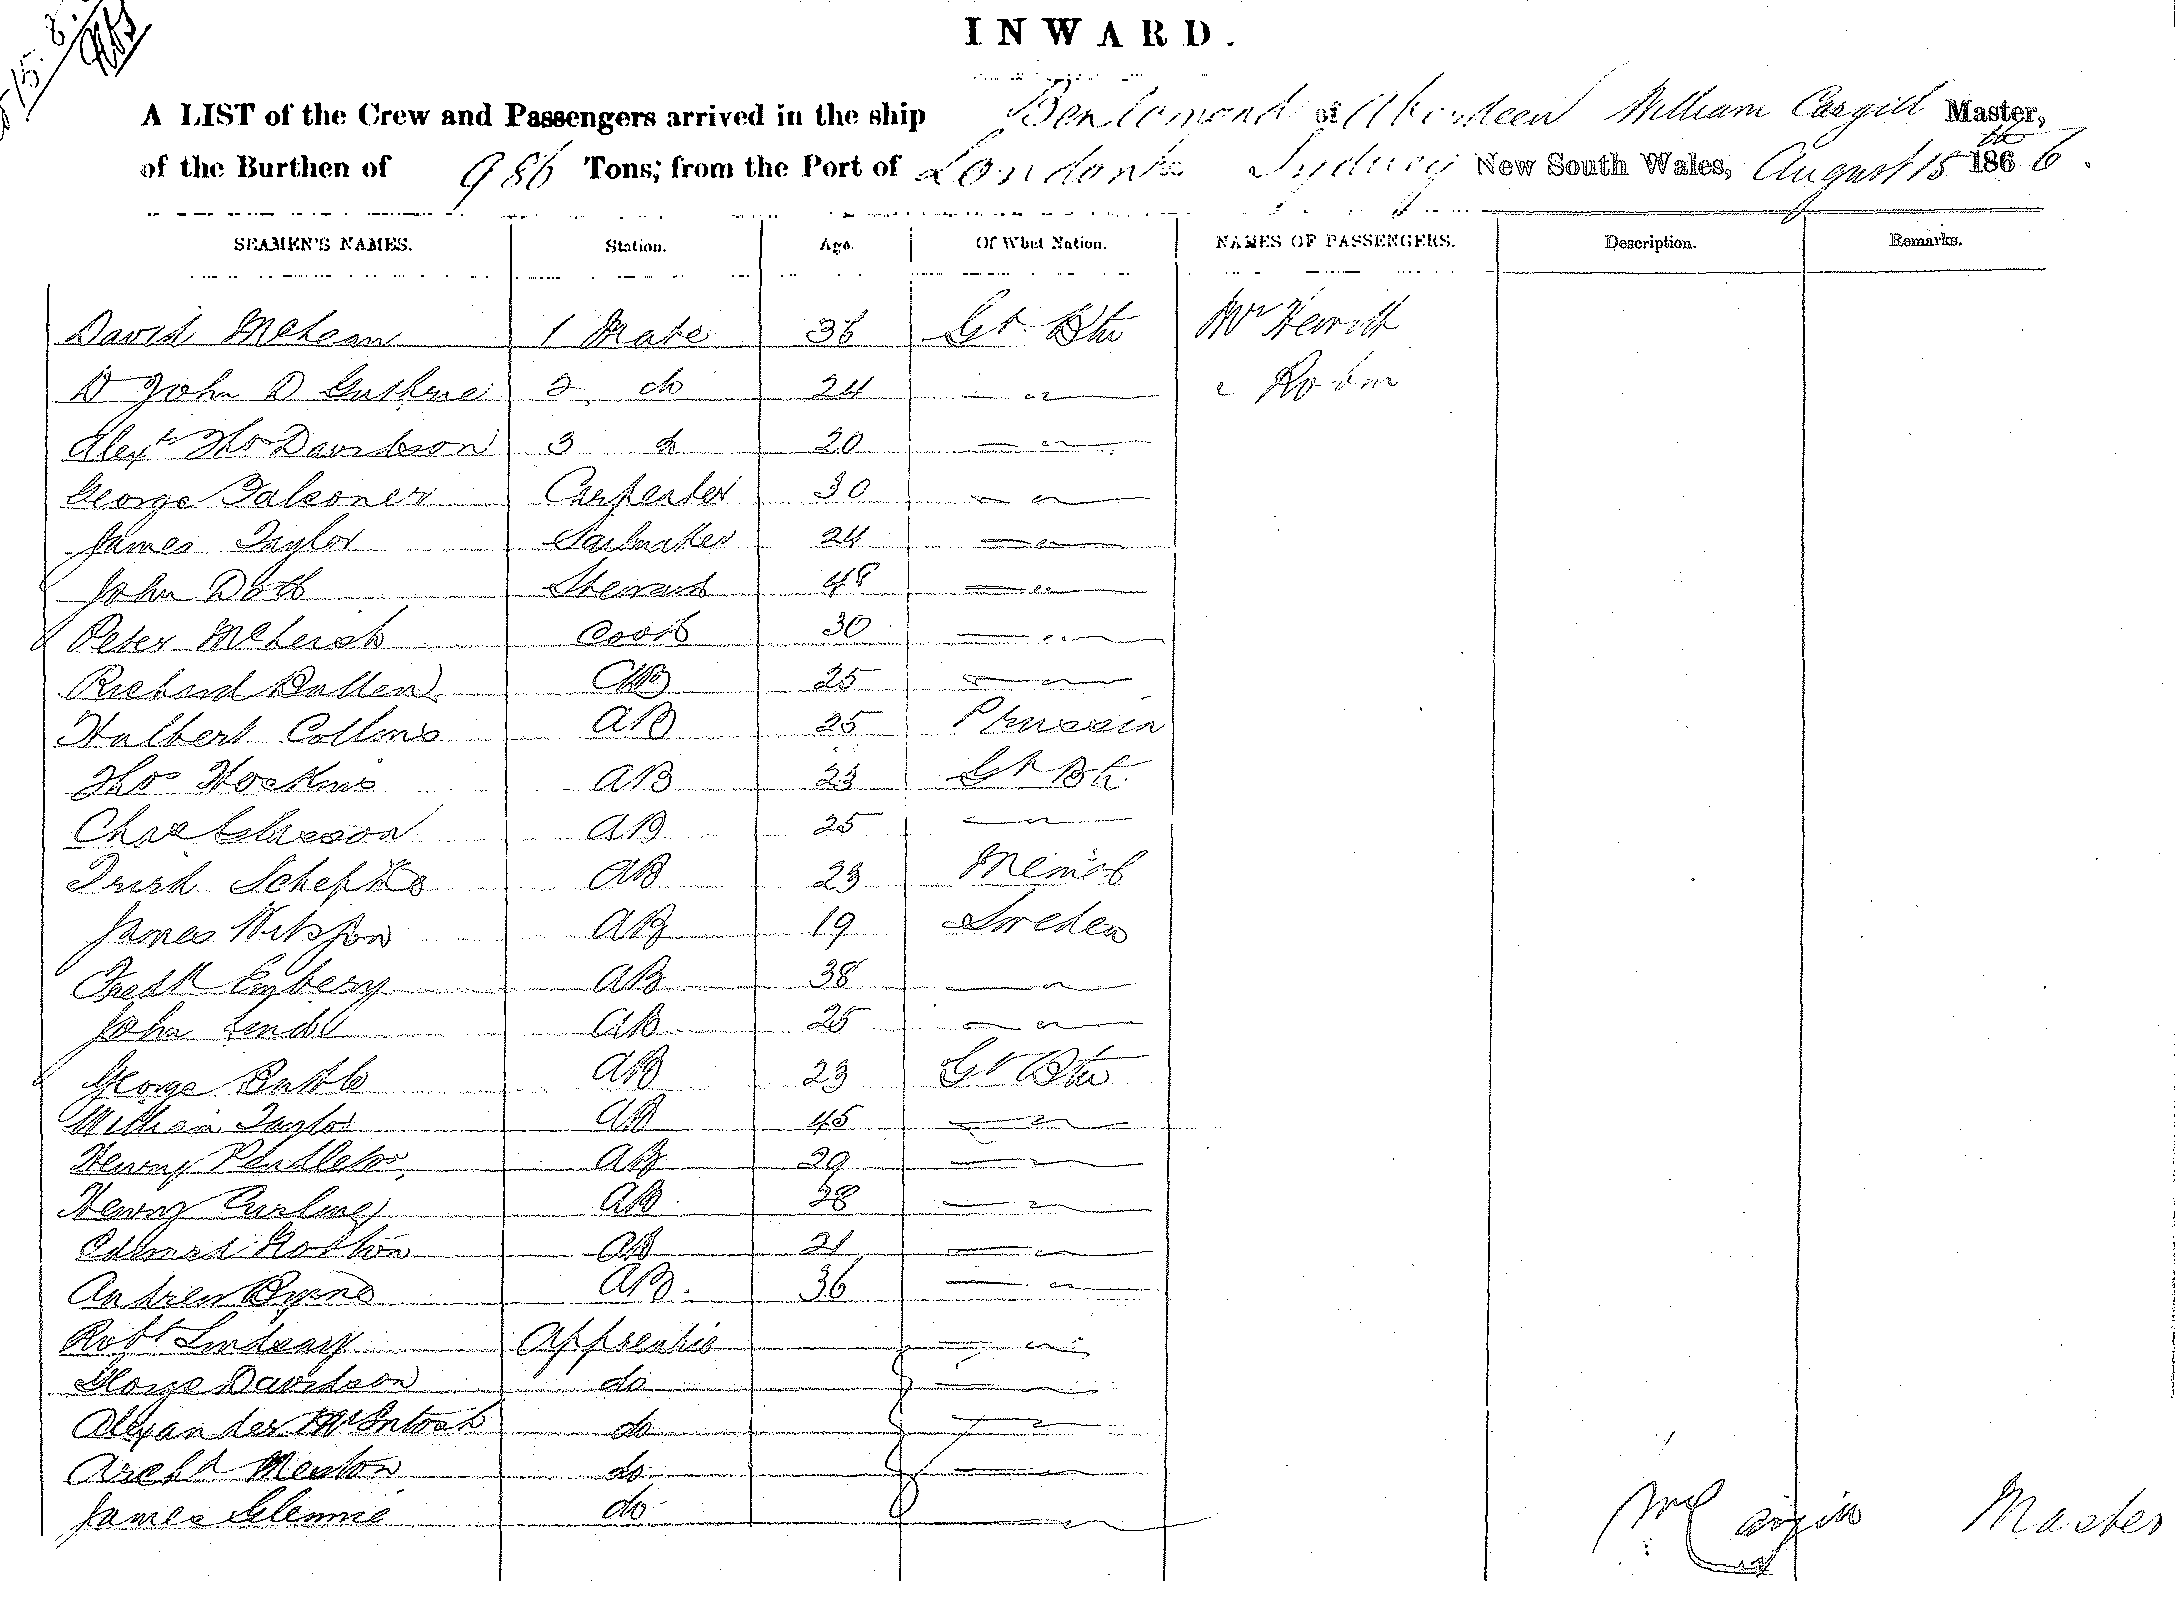 INWARD.
A LIST of the Crew and Passengers arrived in the ship Benlomond of Aberdeen William Cargill Master,
of the Burthen of 986 Tons; from the Port of London to Sydney New South Wales, August 15th 1866.
SEAMEN'S NAMES. Station. Age. Of What Nation. NAMES OF PASSENGERS. Description. Remarks.
David McLean 1 Mate 36 Gt Btn Mr Hewitt
John D Guthrie 2 do 24 " "
Alexr Thos Davidson 3 do 20 "
George Falconer Carpenter 30 "
James Taylor Sailmaker 24 "
John Dott Steward 48 "
Peter McLeish Cook 30 "
Richard Bullen AB 25 "
Halbert Collins AB 25 Prussia
Thos Hoskins AB 23 Gt Bt
Chas Glasson AB 25 "
AB 23
James AB 19 Sweden
Fredk Enbery AB 38 "
John AB 25 "
George AB 23 Gt Btn
William Taylor AB 45 "
Henry Pendleton AB 29 "
Henry Curling AB 28 "
Edward AB 21 "
Andrew Byrne AB. 36 "
Robt Lindsay Apprentice "
George Davidson do "
Alexander McIntosh do "
Archd Meston do "
James Glennie do "
Wm Cargill Master